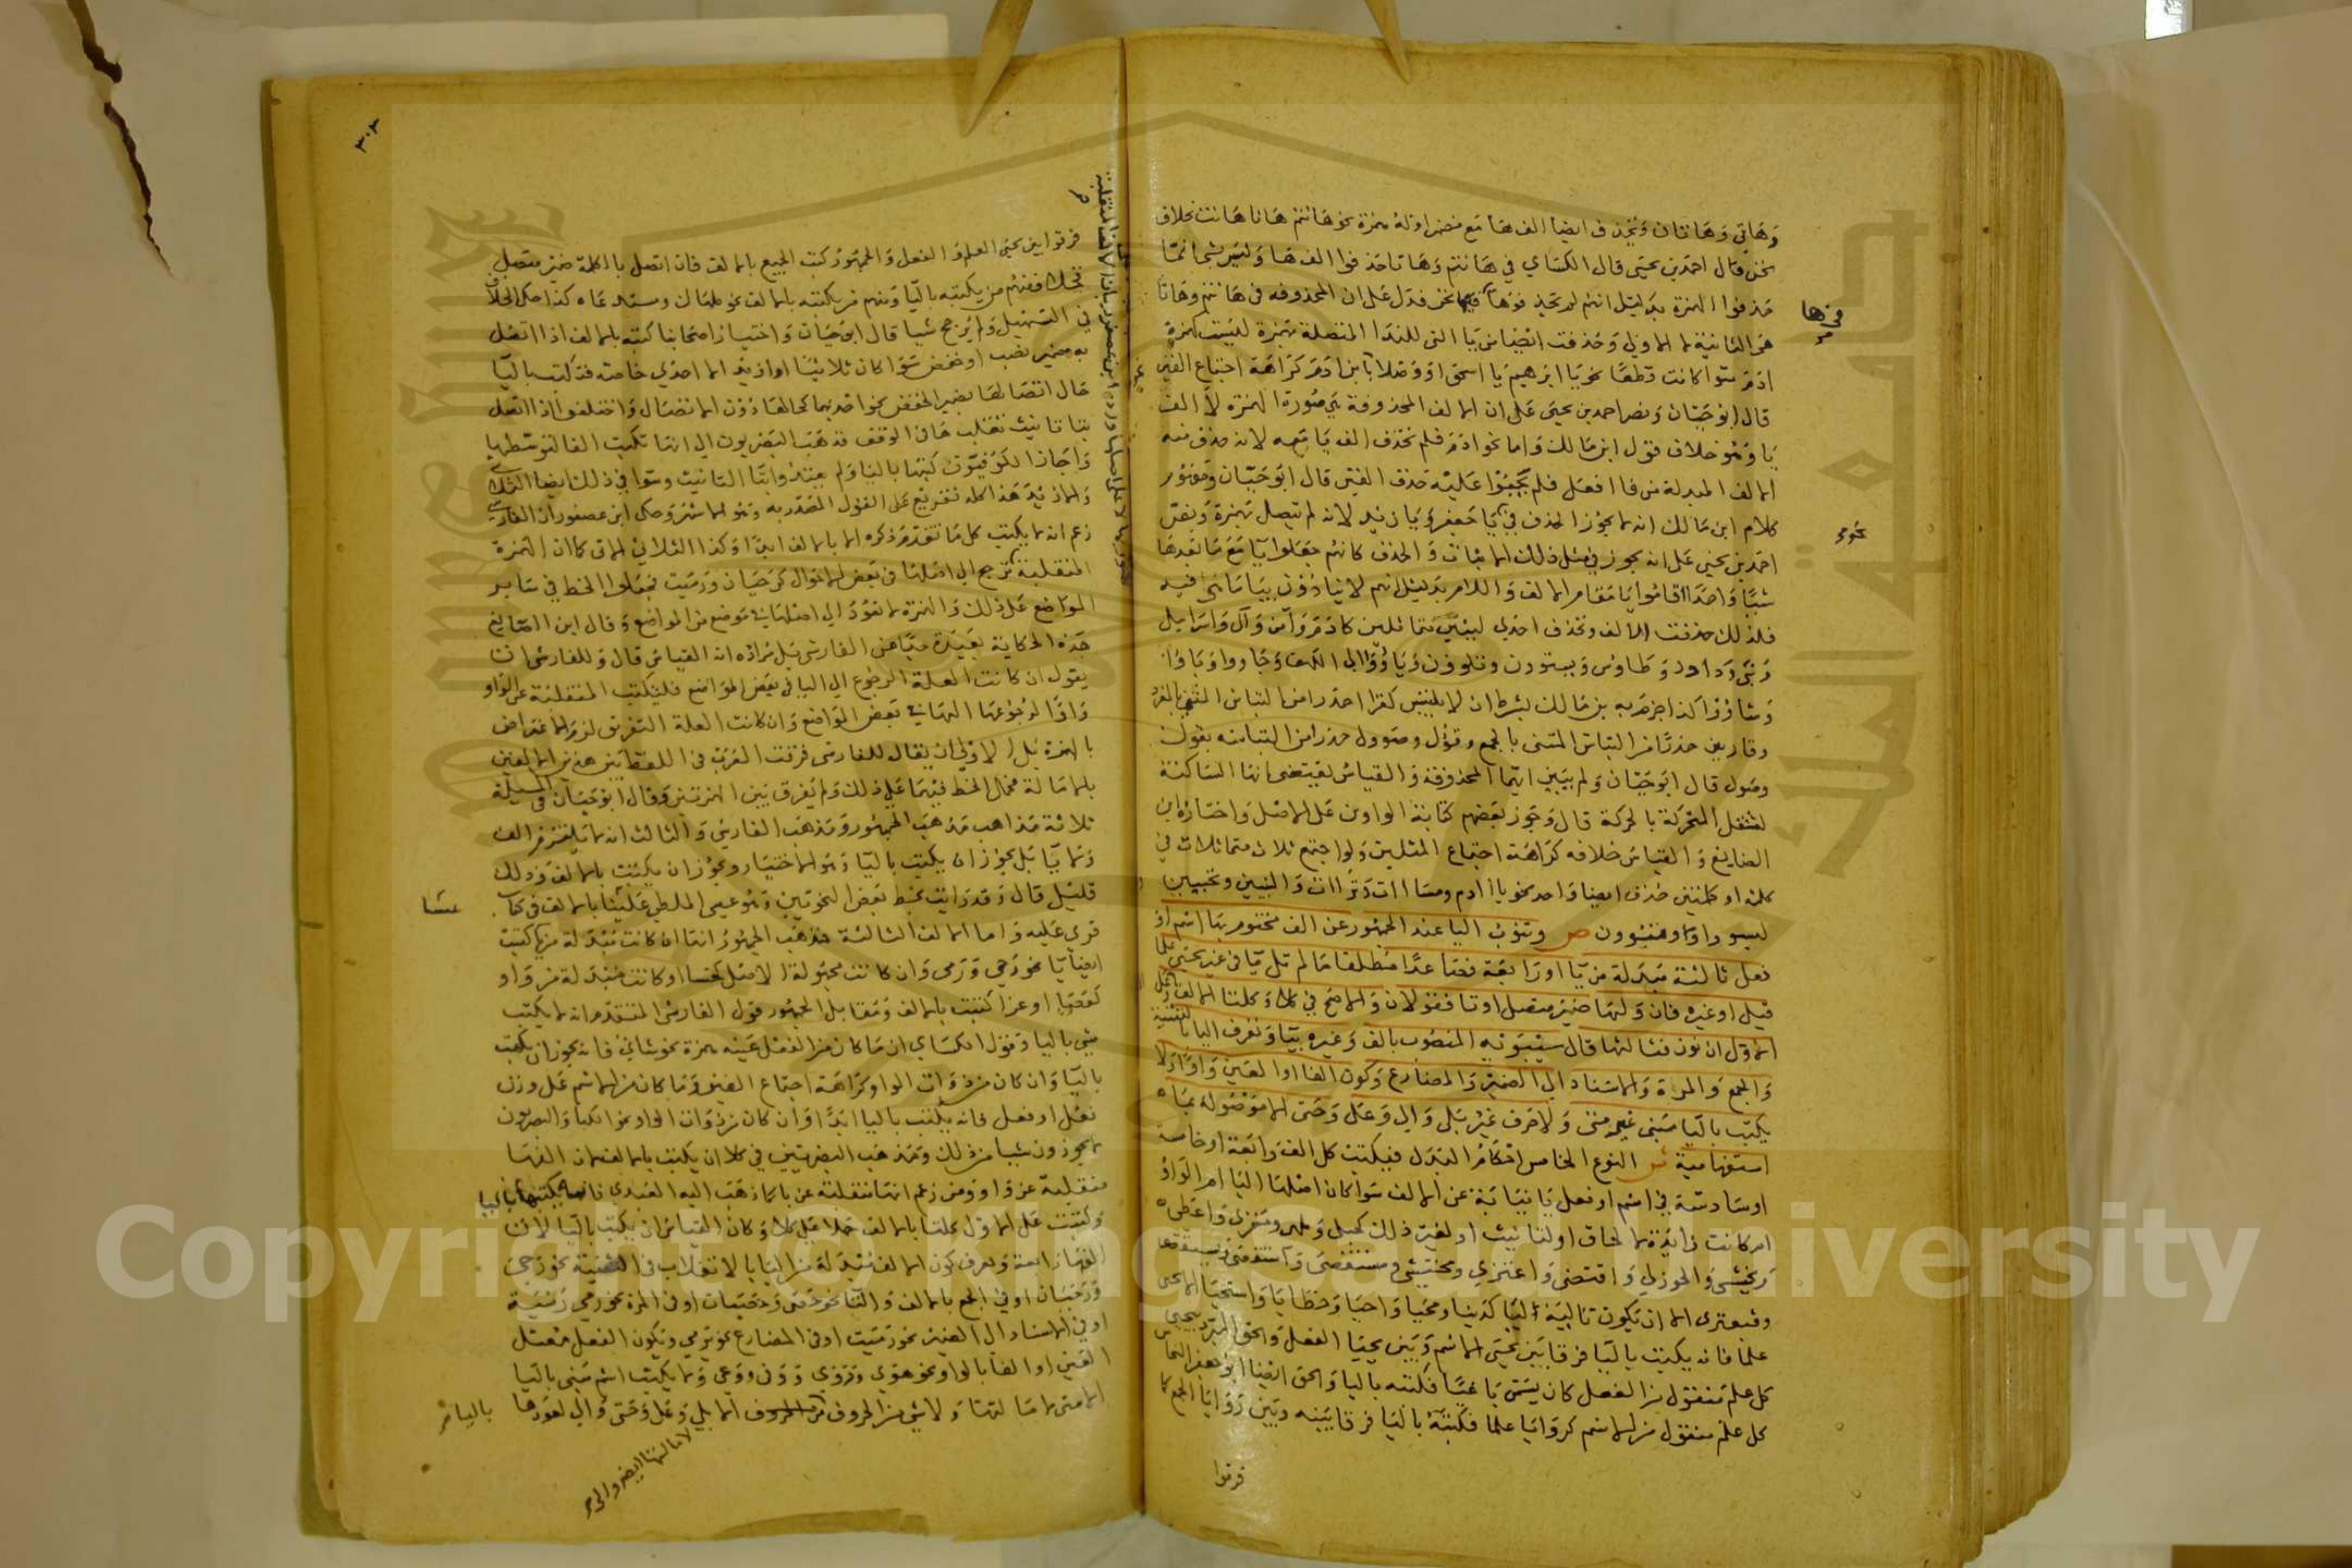 وهاتي وهاتان وتحذف ايضا الف ها مع مضمر اوله همزة نحو هانتم هانا هانت بخلاف
نحن قال احمد بن يحيى قال الكسائي في هانتم وهانا حذفوا الف ها وليس ثم انما
حذفوا الهمزة بدليل انهم لم يحذفوها في نحن فدل على ان المحذوفه في هانتم وهانا
هي الثانية لا الاولى وحذفت ايضا من يا التي للندا المتصلة بهمزة ليست كهمزة
ادم سوا كانت قطعا نحو يا ابرهيم يا اسحق او وصلا يا بن ادم كراهة اجتماع الفين
قال ابو حيان ونص احمد بن يحيى على ان الالف المحذوفة هي صورة الهمزة لا الف
يا وهو خلاف قول ابن مالك واما نحو ادم فلم تحذف الف يا معه لانه حذف منه
الالف المبدلة من فا افعل فلم يجمعوا عليه حذف الفين قال ابو حيان ومفهوم
كلام ابن مالك انه لا يجوز الحذف في يا جعفر ويا زيد لانه لم تتصل بهمزة ونص
احمد بن يحيى على انه يجوز في مثل ذلك الاثبات والحذف كانهم جعلوا يا مع ما بعدها
شيا واحدا اقاموا يا مقام الالف واللام بدليل انهم لا ينادون بيا ما هي فيه
فلذلك حذفت الالف وتحذف احدى لينين متماثلين كادم وآمن وآل واسرايل
ونبي وداود وطاوس ويستون ويلون وياووا الى الكهف وجاوا وباوا
وشاووا كذا جزم به بن مالك بشرط ان لا يلتبس كقرا احذرا من التباس المثنى بالمفرد
وقارين حذرا من التباس المثنى بالجمع وقؤل وصوول حذرا من التباسه بقول
وصول قال ابو حيان ولم يبين ايهما المحذوفة والقياس يقتضى انها الساكنة
لثقل المتحركة بالحركة قال وجوز بعضهم كتابة الواوين على الاصل واختاره ابن
الضايع والقياس خلافه كراهة اجتماع المثلين ولو اجتمع ثلاث متماثلات في
كلمة او كلمتين حذف ايضا واحد نحو يا ادم ومساات وبراات والنبيين وتحيين
ليسووا او مسوون ص وتنوب اليا عند الجمهور عن الف مختوم بها اسم او
فعل ثالثة مبدلة من يا او رابعة فصاعدا مطلقا ما لم تل يا في غير يحيى علما
قيل او غيره فان وليها ضمير متصل او تا فقولان والاصح في كلا وكلتا الالف وعلى
الاول ان نون فثالثها قال سيبويه المنصوب بالف وغيره بيا وتعرف اليا بالتثنية
والجمع والمرة والاسناد الى الضمير والمضارع وكون الفا او العين واوا ولا
يكتب باليا مبني غير متى ولا حرف غير بلى والى وعلى وحتى الا موصوله بما
استفهامية ش النوع الخامس احكام البدل فيكتب كل الف رابعة او خامسة
او سادسة في اسم او فعل يا نيابة عن الالف سوا كان اصلها اليا ام الواو
ام كانت زايدة للالحاق او للتانيث او لغير ذلك كحبلى وملهى ومغزى واعطى
ويخشى والخوزلى واقتضى واعتزى ويختشى ومستقصى واستقصى ويستقصى
وقبعثرى الا ان تكون تالية اليا كدنيا ومحيا واحيا وخطايا واستحيا الا يحيى
علما فانه يكتب باليا فرقا بين يحيى الاسم وبين يحيا الفعل والحق المبرد بيحيى
كل علم منقول من الفعل كان يسمى باعيا فكتبه باليا والحق ايضا ابو جعفر النحاس
كل علم منقول من الاسم كروايا علما فكتبه باليا فرقا بينه وبين زوايا الجمع كما
فرقوا
فرقوا بين يحيى العلم والفعل والجمهور كتب الجميع بالالف فان اتصل بالكلمة ضمير متصل
فمنهم من يكتبه باليا ومنهم من يكتبه بالالف نحو ملهاك ومستدعاه كذا حكى الخلاف
في التسهيل ولم يرجح شيا قال ابو حيان واختيار اصحابنا كتبه بالالف اذا اتصل
به ضمير نصب او خفض سوا كان ثلاثيا او ازيد الا احدى خاصة فتكتب باليا
حال اتصالها بضمير الخفض نحو احديهما كحالها دون الاتصال واختلفوا اذا اتصل
بتا تانيث تقلب ها في الوقف فذهب البصريون الى انها تكتب الفا لتوسطها
واجاز الكوفيون كتبها باليا ولم يعتدوا بتا التانيث وسوا في ذلك ايضا الثلاثي
والازيد هذا كله تفريع على القول المصدر به وهو الاشهر وحكى ابن عصفور ان الفارسي
زعم انه لا يكتب كل ما تقدم ذكره الا بالالف ابدا وكذا الثلاثي الاتي كما ان الهمزة
المنقلبة ترجع الى اصلها في بعض الاحوال كرحيان ورميت فجعلوا الخط في ساير
المواضع على ذلك والهمزة لا تعود الى اصلها في موضع من المواضع وقال ابن الضايع
هذه الحكاية بعيدة جدا عن الفارسي بل مراده انه القياس قال وللفارسي ان
يقول ان كانت العلة الرجوع الى اليا في بعض المواضع فليكتب المنقلبة عن الواو
واوا لرجوعها اليها في بعض المواضع وان كانت العلة التفريق لزم الاعتراض
بالهمزة بل الاولى ان يقال للفارسي فرقت العرب في اللفظ بين هذين الالفين
بالامالة فحمل الخط فيهما على ذلك ولم يفرق بين الهمزتين وقال ابو حيان في المسيلة
ثلاثة مذاهب مذهب الجمهور ومذهب الفارسي والثالث انه لا يلتزم الف
ولا يا بل يجوز ان يكتب باليا وهو الاختيار ويجوز ان يكتب بالالف وذلك
قليل قال وقد رايت بخط بعض النحويين وهو عيسى الملطي عليثا بالالف في كتاب
قرى عليه واما الالف الثالثة فمذهب الجمهور انها ان كانت مبدلة من يا كتبت
ايضا يا نحو رحى ورمى وان كانت مجهولة الاصل كخسا او كانت مبدلة من واو
كعصا او غزا كتبت بالالف ومقابل الجمهور قول الفارسي المتقدم انه لا يكتب
شي باليا وقول الكسائي ان ما كان من الفعل عينه همزة نحو شاى فانه يجوز ان يكتب
باليا وان كان من ذوات الواو كراهة اجتماع الفين وما كان من الاسم على وزن
فعل او فعل فانه يكتب باليا ابدا وان كان من ذوات الواو نحو الكبا والبصريون
لا يجوزون شيا من ذلك ومذهب البصريين في كلا ان يكتب بالالف لان الفها
منقلبة عن واو ومن زعم انها منقلبة عن يا كما ذهب اليه العبدى فانه يكتبها باليا
وكتبت على الاول كلتا بالالف حملا على كلا وكان القياس ان يكتب باليا لان
الفها رابعة وتعرف كون الالف مبدلة من اليا بالانقلاب في التثنية نحو رحى
ورحيان او في الجمع بالالف والتا نحو حصى وحصيات او في المرة نحو رمى رمية
او في الاسناد الى الضمير نحو رميت او في المضارع نحو يرمي وبكون الفعل معتل
العين او الفا بالواو نحو هوى وذوى ووفى ووعى ولا يكتب اسم مبني باليا
الا متى لامالتها ولا شي من الحروف الا بلى وعلى وحتى والى لعودها
باليا
٣٠٣